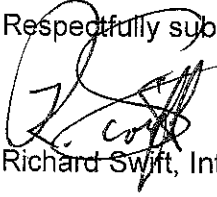 Respectfully sub
Richard Swift, Int